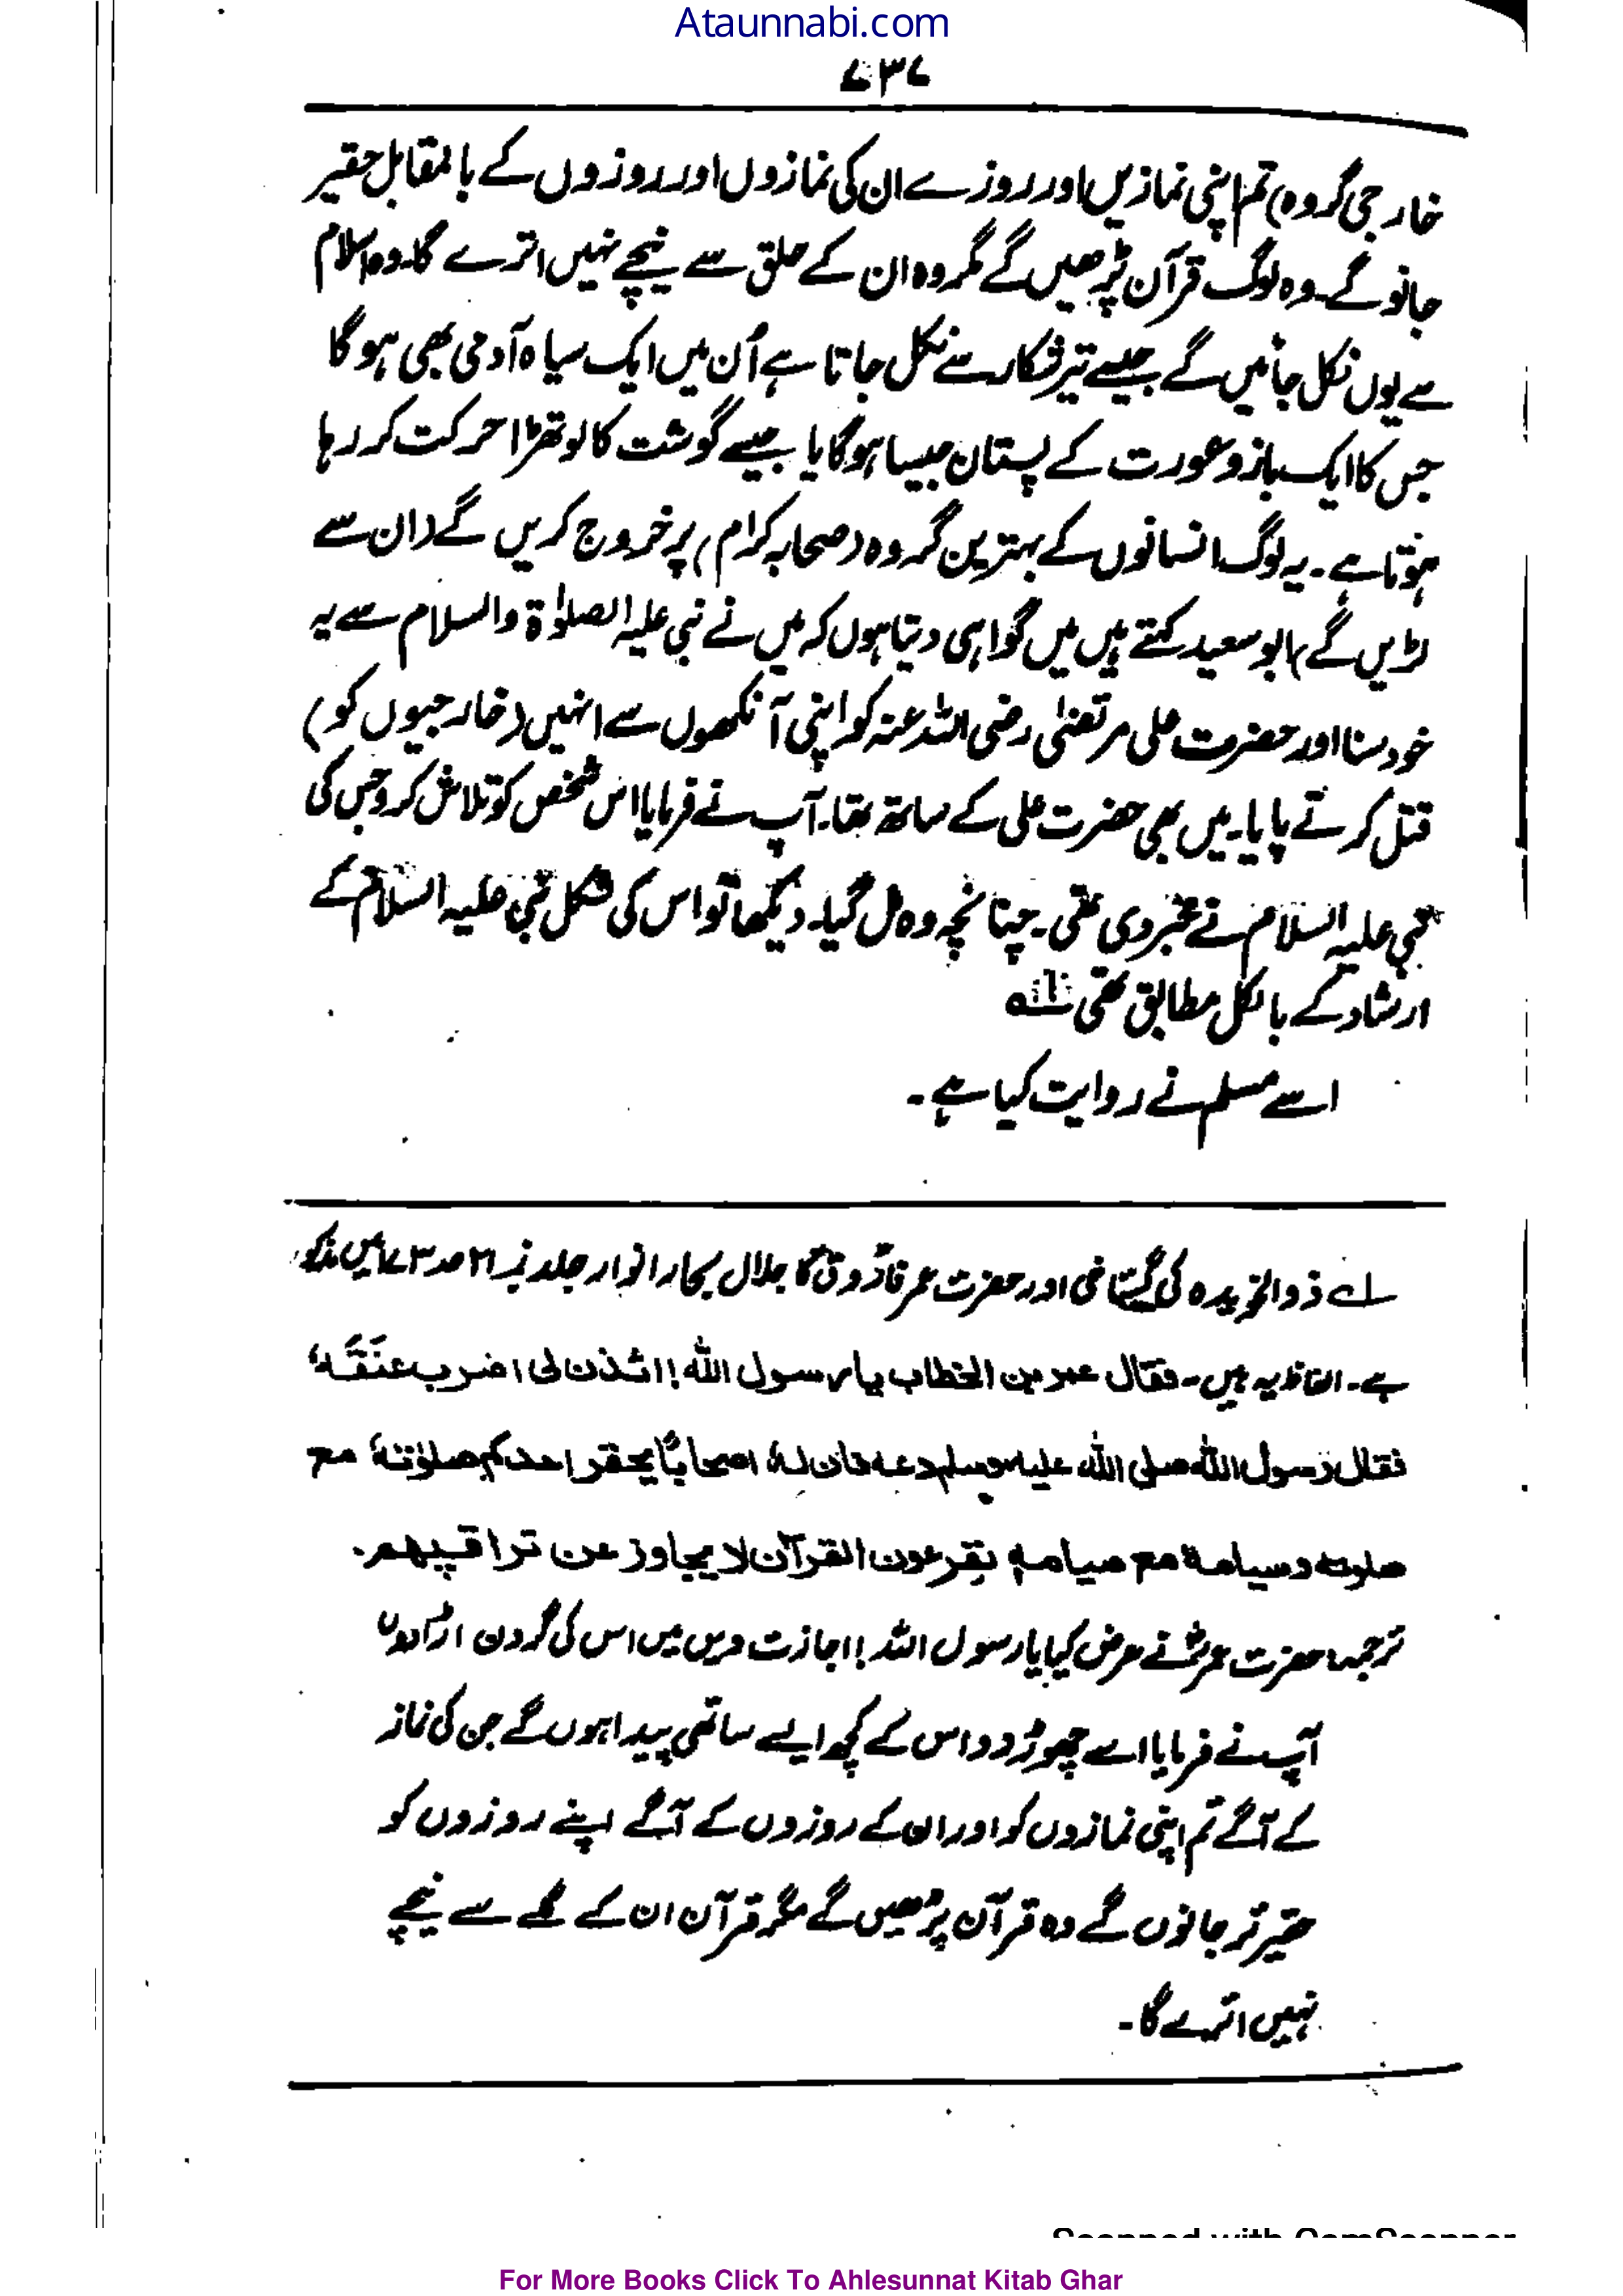 Ataunnabi.com
۷۳۷
خارجی گروہ) تم اپنی نمازیں اور روزے ان کی نمازوں اور روزوں کے بالمقابل حقیر
جانو گے۔ وہ لوگ قرآن پڑھیں گے مگر وہ ان کے حلق سے نیچے نہیں اترے گا۔ وہ اسلام
سے یوں نکل جائیں گے جیسے تیر شکار سے نکل جاتا ہے اُن میں ایک سیاہ آدمی بھی ہو گا
جس کا ایک بازو عورت کے پستان جیسا ہو گا یا جیسے گوشت کا لوتھڑا حرکت کر رہا
ہوتا ہے۔ یہ لوگ انسانوں کے بہترین گروہ (صحابہ کرام) پر خروج کریں گے (ان سے
لڑیں گے) ابو سعید کہتے ہیں میں گواہی دیتا ہوں کہ میں نے نبی علیہ الصلوٰۃ والسلام سے یہ
خود سنا اور حضرت علی مرتضیٰ رضی اللہ عنہ کو اپنی آنکھوں سے انہیں (خارجیوں کو)
قتل کرتے پایا۔ میں بھی حضرت علی کے ساتھ تھا۔ آپ نے فرمایا اس شخص کو تلاش کرو جس کی
نبی علیہ السلام نے خبر دی تھی۔ چنانچہ وہ مل گیا۔ دیکھا تو اس کی شکل نبی علیہ السلام کے
ارشاد کے بالکل مطابق تھی
اسے مسلم نے روایت کیا ہے۔
لے ذوالخویصرہ کی گستاخی اور حضرت عمر فاروقؓ کا جلال بحار انوار جلد نمبر ۲۱ صہ ۱۷۳ میں مذکور
ہے۔ الفاظ یہ ہیں۔ فقال عمر بن الخطاب یا رسول اللہ! ائذن لی اضرب عنقَہٗ
فقال رسول اللہ صلی اللہ علیہ وسلم دعہ فان لہٗ اصحابًا یحقر احدکم صلوٰتہٗ مع
صلوتہ وصیامہ مع صیامہ یقرءون القرآن لا یجاوز عن تراقیہم۔
ترجمہ: حضرت عمرؓ نے عرض کیا یا رسول اللہ! اجازت دیں میں اس کی گردن اڑا دوں
آپ نے فرمایا اسے چھوڑ دو اس کے کچھ ایسے ساتھی پیدا ہوں گے جن کی نماز
کے آگے تم اپنی نمازوں کو اور ان کے روزوں کے آگے اپنے روزوں کو
حقیر تر جانوں گے وہ قرآن پڑھیں گے مگر قرآن ان کے گلے سے نیچے
نہیں اترے گا۔
Scanned with CamScanner
For More Books Click To Ahlesunnat Kitab Ghar